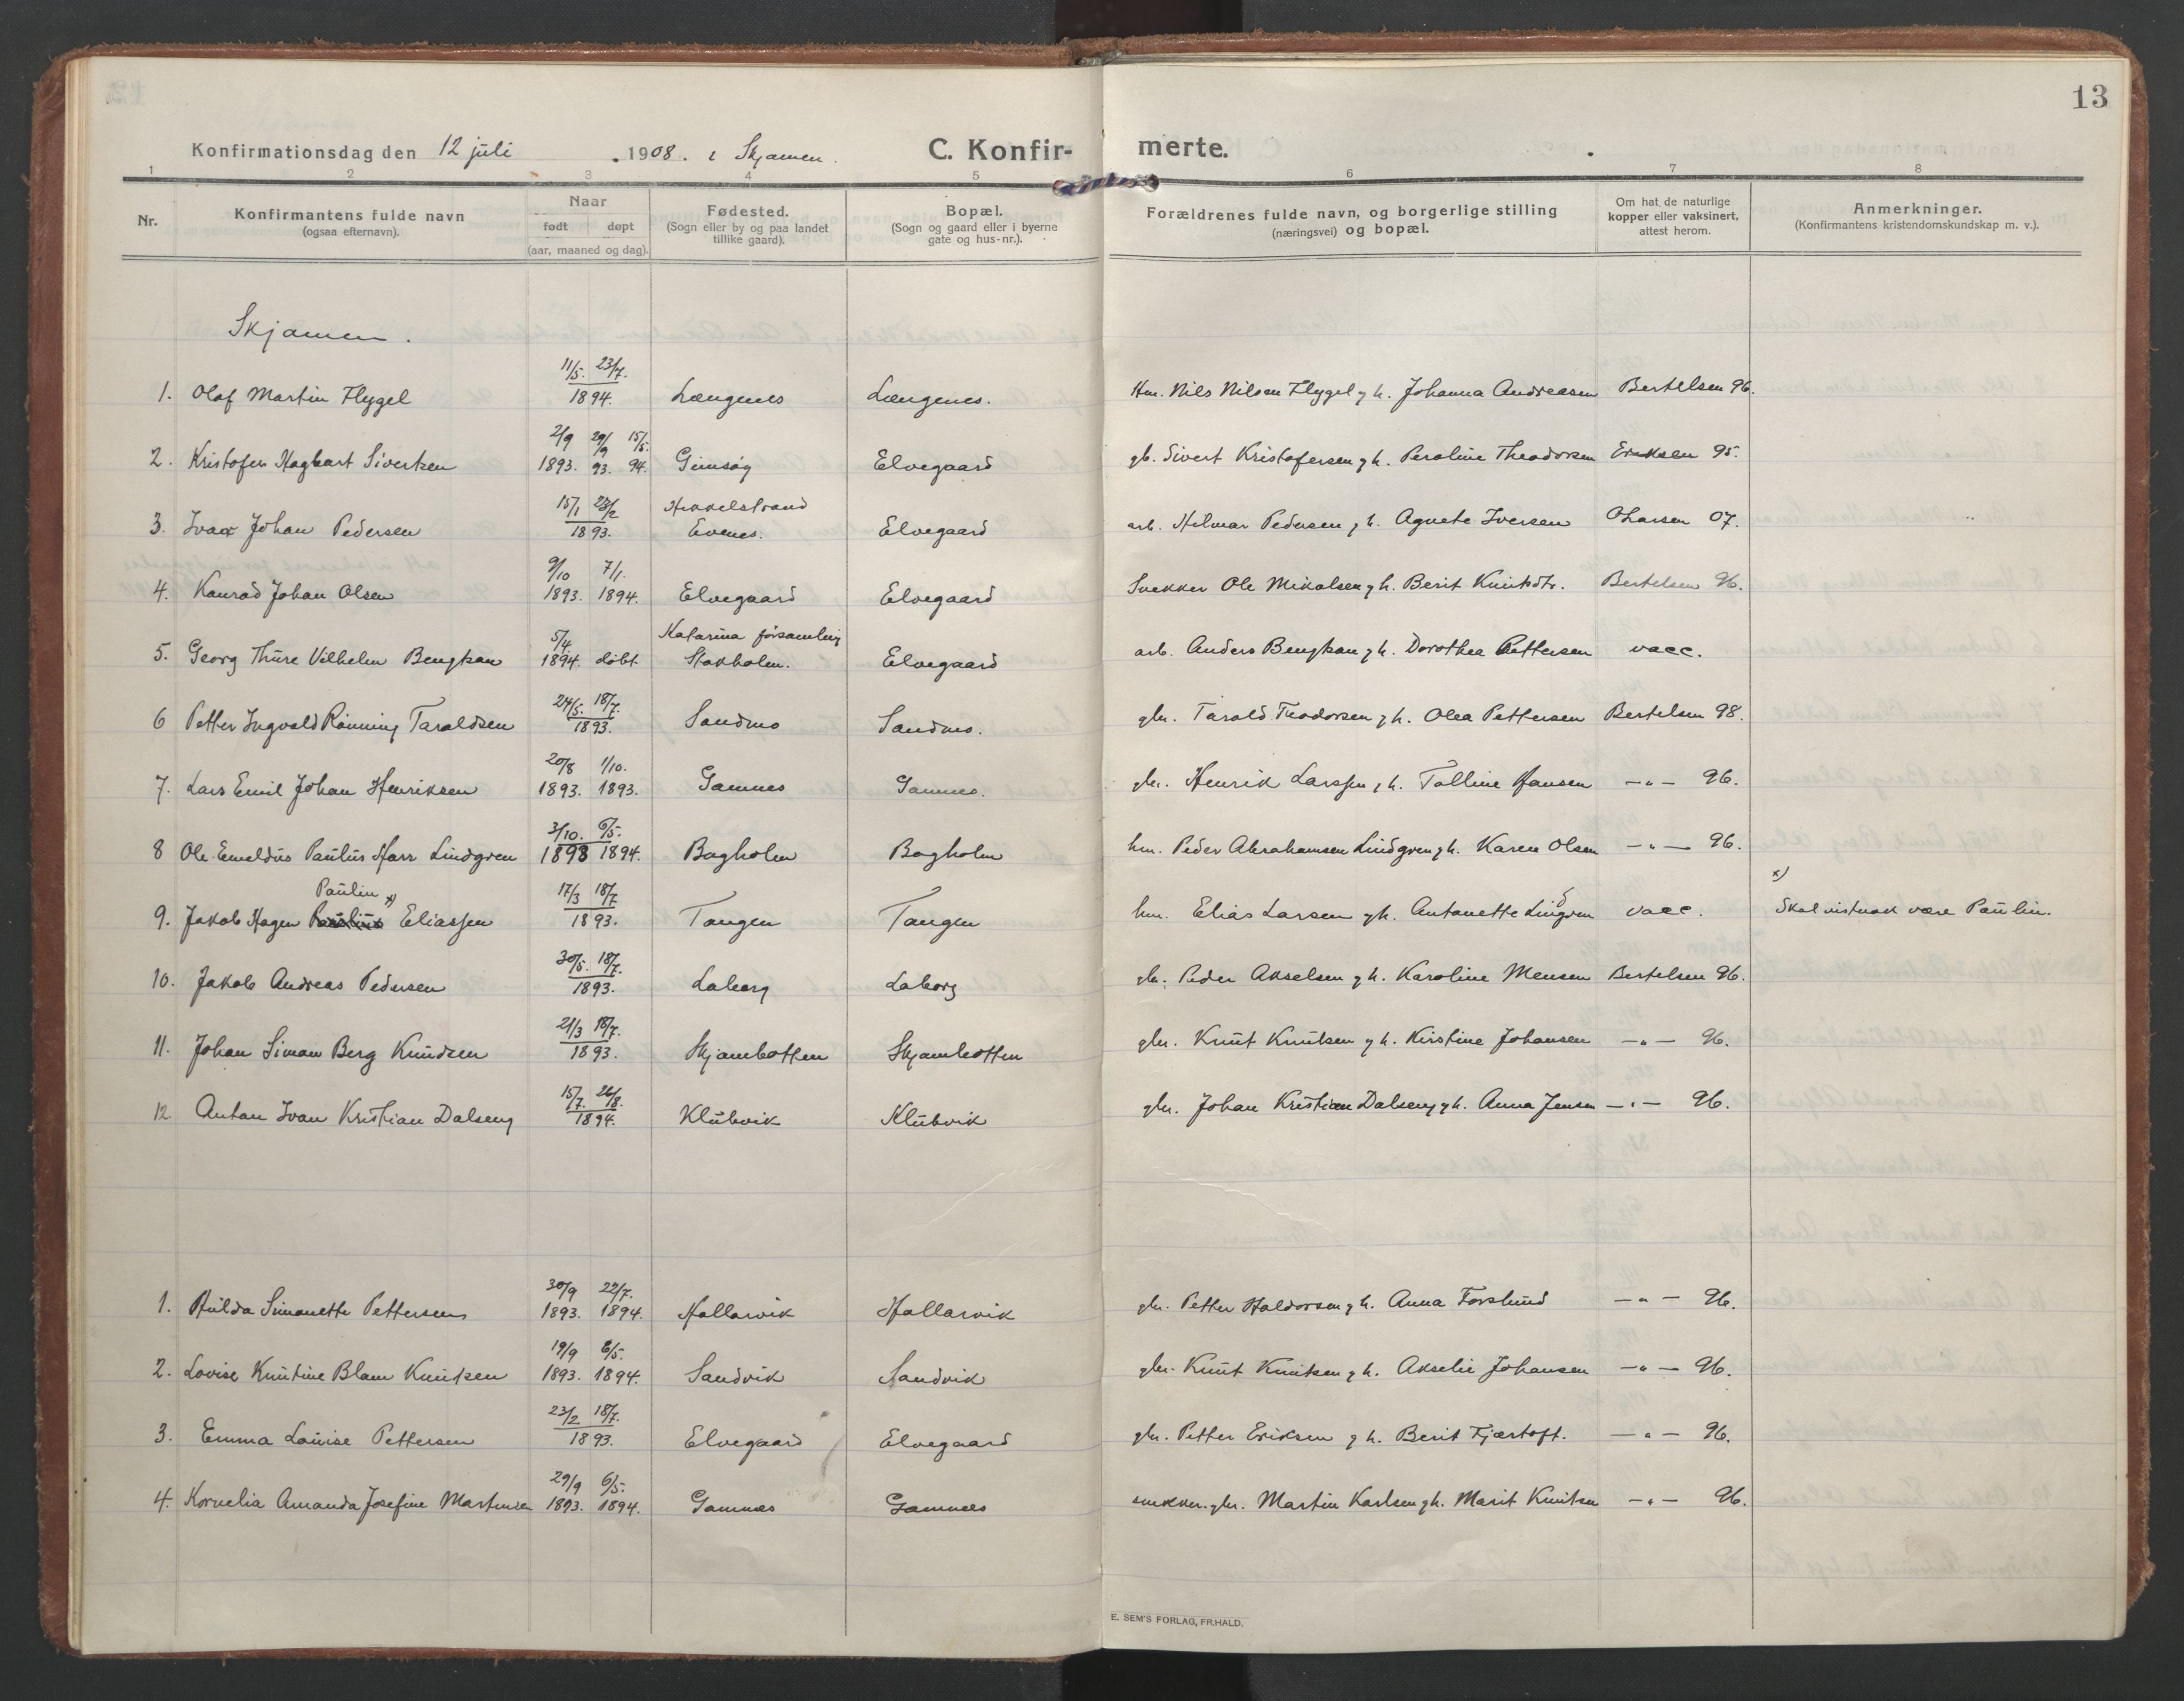 13
Konfirmationsdag den 12 juli 1908. i Skjomen.
C. Konfir-merte.
1 2 3 4 5 6 7 8
Nr.
Konfirmantens fulde navn
(ogsaa efternavn).
Naar
født døpt
(aar, maaned og dag).
Fødested.
(Sogn eller by og paa landet
tillike gaard).
Bopæl.
(Sogn og gaard eller i byerne
gate og hus-nr.).
Forældrenes fulde navn, og borgerlige stilling
(næringsvei) og bopæl.
Om hat de naturlige
kopper eller vaksinert,
attest herom.
Anmerkninger.
(Konfirmantens kristendomskundskap m. v.).
Skjomen.
11/5. 23/7.
1. Olaf Martin Flygel 1894. Længenes Længenes. Hm. Nils Nilsen Flygel g h. Johanna Andreasen Bertelsen 96.
2/9 29/9 15/5.
2. Kristofer Hagbart Sivertsen 1893. 93. 94. Gimsøy Elvegaard gb. Sivert Kristofersen g h. Peroline Theodorsen Eriksen 95.
15/1 23/2 Hekkelstrand
3. Ivar Johan Pedersen 1893. Evenes. Elvegaard arb. Hilmar Pedersen g h. Agnete Iversen O Larsen 07.
9/10 7/1.
4. Konrad Johan Olsen 1893. 1894. Elvegaard Elvegaard Snekker Ole Mikalsen g h. Berit Knutsdtr. Bertelsen 96.
5/4 Katarina församling
5. Georg Thure Vilhelm Bengtson 1894. døbt Stokholm. Elvegaard arb. Anders Bengtson g h. Dorothea Pettersen vacc.
24/5. 18/7.
6 Petter Ingvald Rønning Taraldsen 1893. Sandmo Sandmo. gbr. Tarald Theodorsen g h. Olea Pettersen Bertelsen 98.
20/8 1/10.
7. Lars Emil Johan Henriksen 1893. 1893. Gamnes Gamnes. gbr. Henrik Larssen g h. Talline Hansen —"— 96.
3/10. 6/5.
8 Ole Emeldus Paulus Harr Lindgren 1893 1894. Bogholm Bogholm hm. Peder Abrahamsen Lindgren g h. Karen Olsen —"— 96.
Paulin x) 17/3 18/7 x)
9. Jakob Hagen Eliassen 1893. Tangen Tangen hm. Elias Larsen g h. Antonette Lingren vacc. Skal vistnok være Paulin.
30/5. 18/7.
10. Jakob Andreas Pedersen 1893. Laberg Laberg gbr. Peder Akselsen g h. Karoline Mensen Bertelsen 96.
21/3 18/7.
11. Johan Simon Berg Knudsen 1893. Skjombotten Skjombotten gbr. Knut Knutsen g h. Kirstine Johansen —"— 96.
15/7. 26/8.
12 Anton Ivan Kristian Dalseng 1894. Klubvik Klubvik gbr. Johan Kristian Dalseng g h. Anna Jensen —"— 96.
30/9 22/7.
1. Hulda Simonette Pettersen 1893. 1894. Hallarvik Hallarvik gbr. Petter Haldorsen g h. Anna Forslund —"— 96.
19/9 6/5.
2. Lovise Knutine Blam Knutsen 1893. 1894. Sandvik Sandvik gbr. Knut Knutsen g h. Akselie Johansen —"— 96.
23/2 18/7.
3. Emma Louise Pettersen 1893. Elvegaard Elvegaard gbr. Petter Eriksen g h. Berit Fjærtoft. —"— 96.
29/9 6/5.
4. Kornelia Amanda Josefine Martinsen 1893. 1894. Gamnes Gamnes snekker. gbr. Martin Karlsen g h. Marit Knutsen —"— 96.
E. SEM'S FORLAG, FR.HALD.